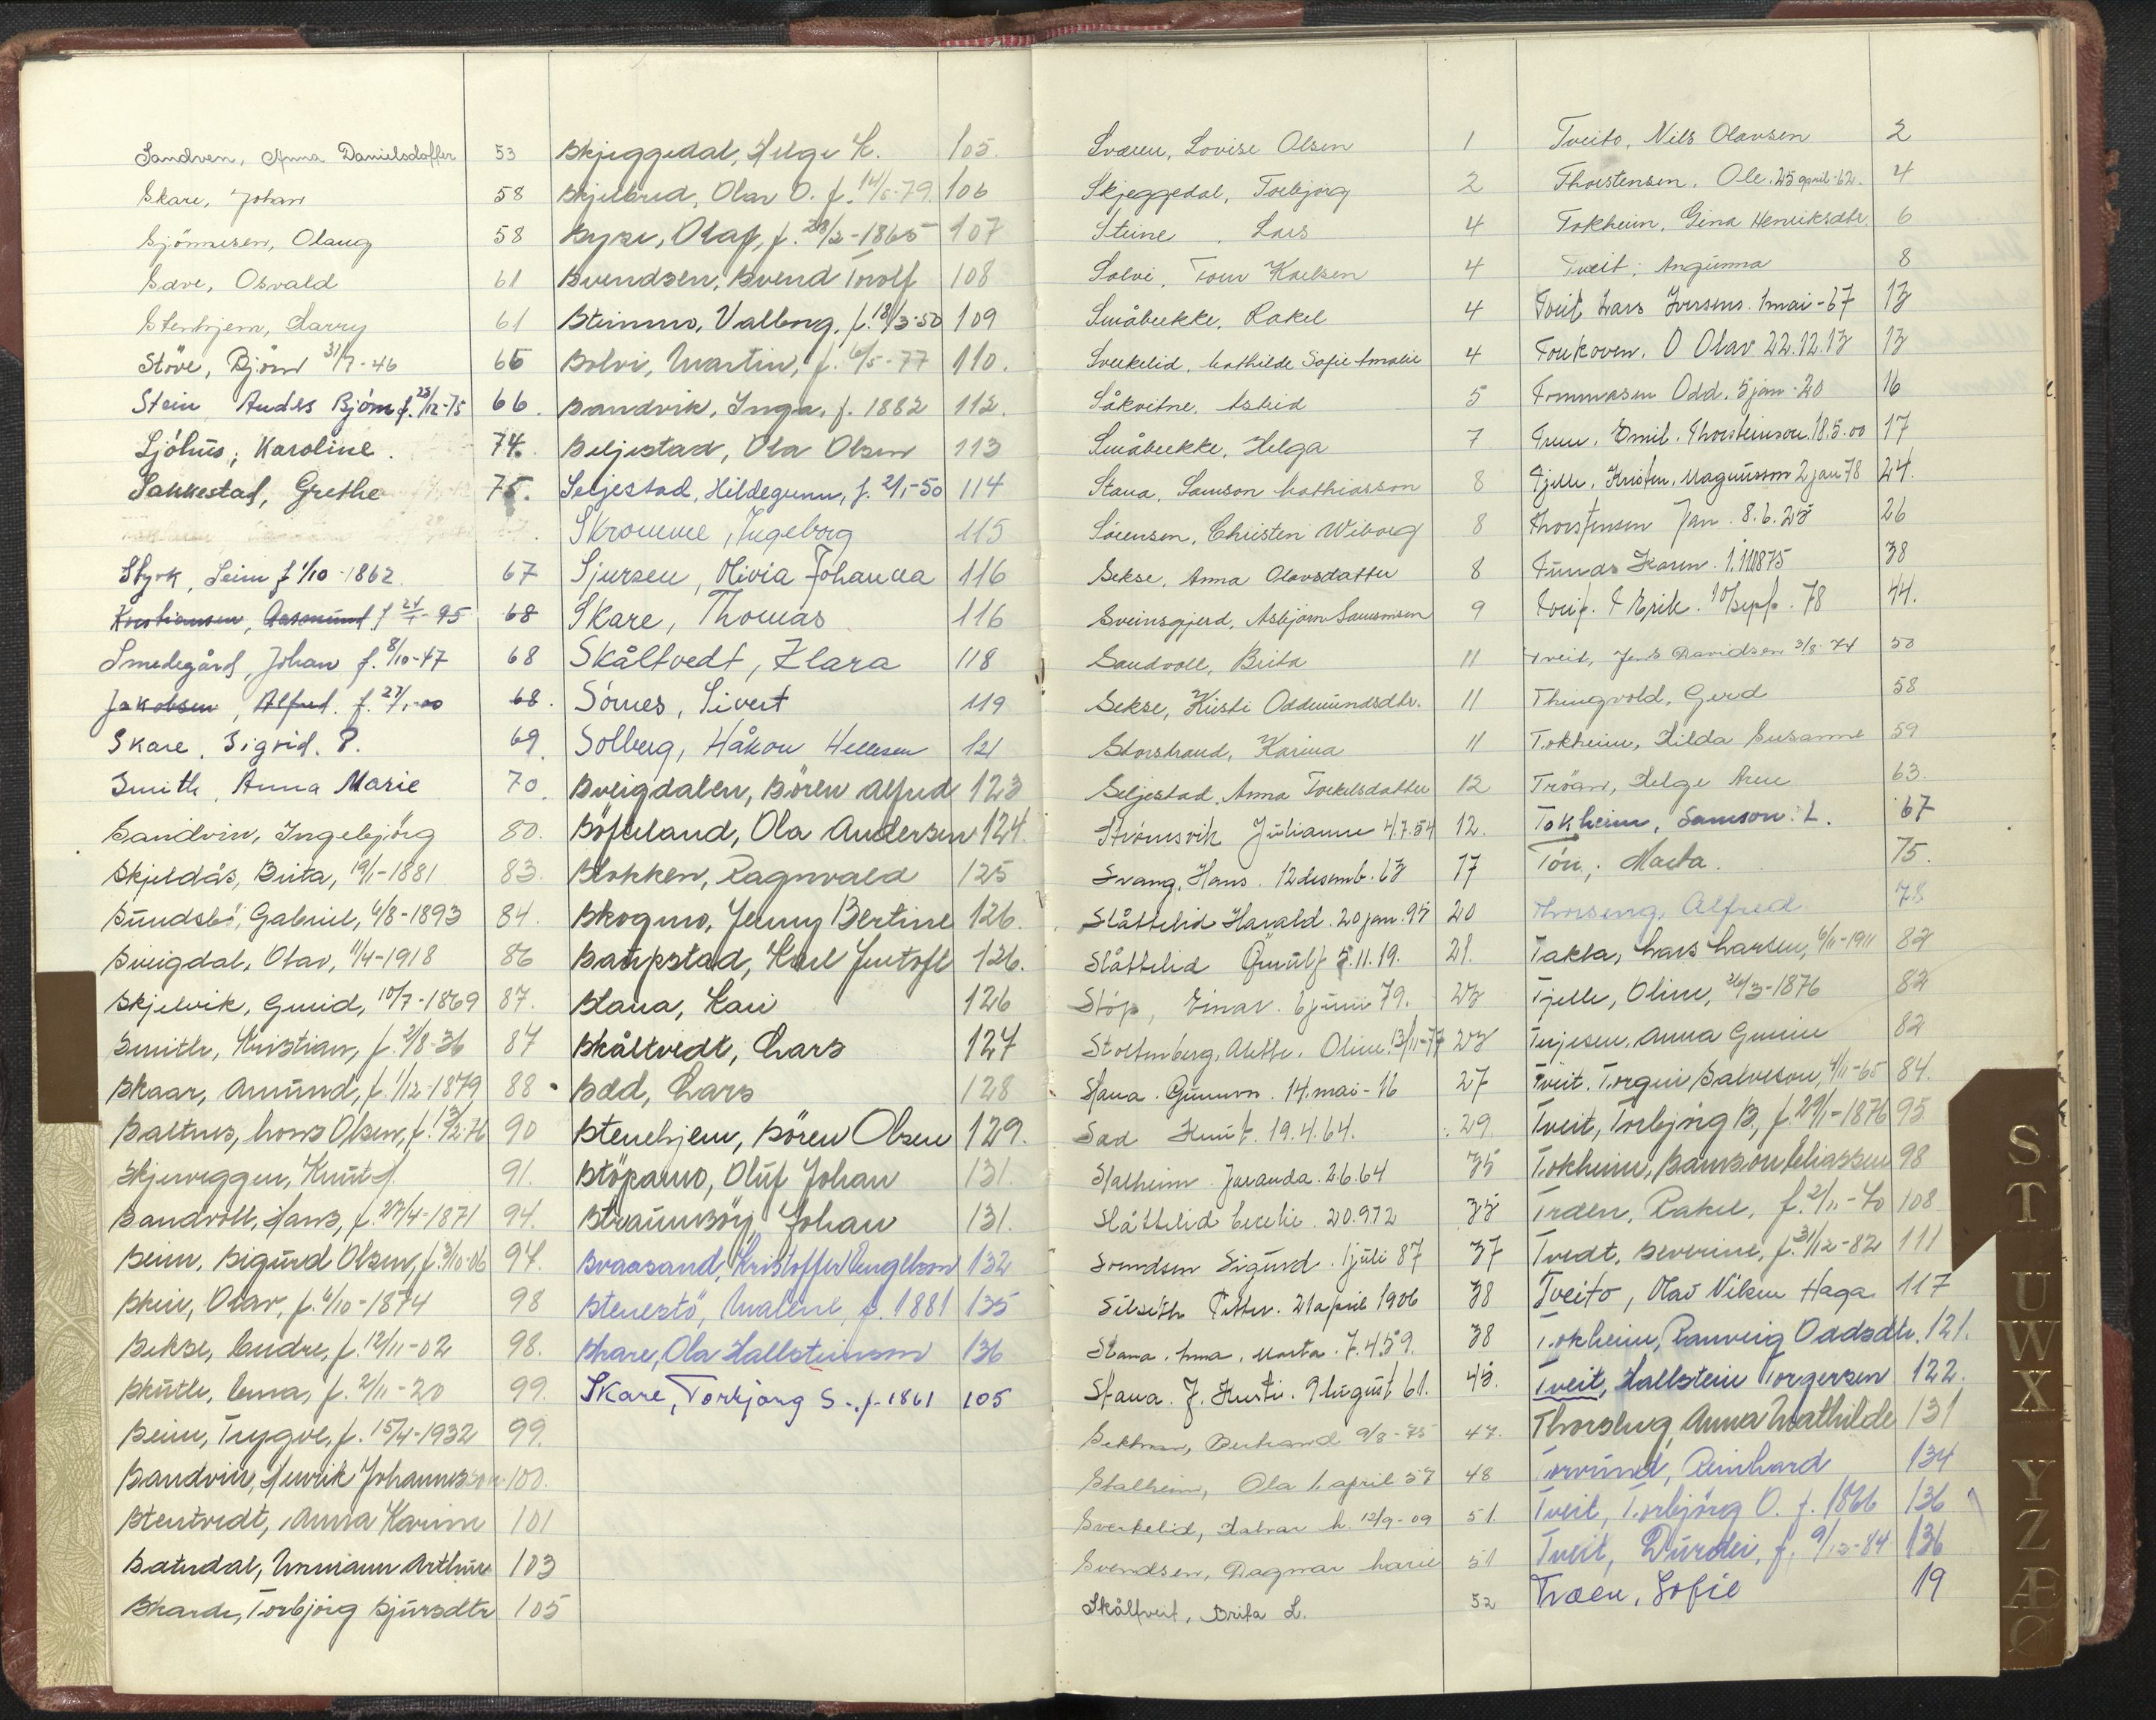 Sandven, Anna Danielsdotter 53
Skare, Johan 58
Sjönnesen, Olaug 58
Save, Osvald 61
Stenhjem, Harry 61
Störe, Björn 31/7-46 65
Stein Anders Björn f. 25/12-75 66.
Sjöhus, Karoline. 74.
Sakkestad, Grethe 75.
Styrk, Seim f 1/10-1862 67
Kristiansen, Aasmund f 24/1-95 68
Smedegård, Johan f. 8/10-47 68
Jakobsen, Alfred. f. 27/1-00 68.
Skare, Sigrid. P. 69.
Smith, Anna Marie 70.
Sandvin, Ingebjörg 80.
Skjeldås, Brita, 19/1-1881 83.
Sundsbö, Gabriel, 6/8-1893 84.
Sveigdal, Olav, 11/4-1918 86
Skjelvik, Gurid, 10/7-1869 87.
Smith, Kristian, f. 2/8-36 87
Skaar, Amund, f. 1/12-1879 88
Saltnes, Lars Olsen, f. 90
Skjerveggen, Knut 91.
Sandvoll, Hans, f. 27/4-1871 94.
Seim, Sigurd Olsen, f. 3/10-06 97.
Skei, Olav, f. 6/10-1874 98
Sekse, Endre, f. 12/11-02 98.
Skutle, Erna, f. 2/11-20 99.
Seim, Trygve, f. 15/4-1932 99.
Sandvin, Henrik Johannesson 100.
Stentvedt, Anna Karine 101
Satndal, Arthur 103
Skarde, Torbjörg Sjursdtr 105
Skjeggedal, Helge K. 105.
Skjelbred, Olav O. f. 14/5-79. 106
Syse, Olaf, f. 28/2-1865 107
Svendsen, Svend Torolf 108
Steinmo, Valborg, f. 18/3-50 109
Solvi, Martin, f. 6/5-77 110.
Sandvik, Inga, f. 1882 112.
Seljestad, Ola Olsen 113
Seljestad, Hildegunn, f. 2/1-50 114
Skromme, Ingeborg 115
Sjursen, Olivia Johanna 116
Skare, Thomas 116
Skåltvedt, Klara 118
Sörnes, Sivert 119
Solberg, Håkon Hellesen 121
Sveigdalen, Sören Alfred 123
Söfteland, Ola Andersen 124.
Slokken, Ragnvald 125
Skogmo, Jenny Bertine 126.
Saupstad, Karl Gustoft 126.
Stana, Kari 126
Skåltvedt, Lars 127
Sæd, Lars 128
Stenehjem, Sören Olsen 129.
Stöpamo, Oluf Johan 131.
Straumsöy, Johan 131.
Svaasand, Kristoffer Engelson 132
Stenestö, Malene, f. 1881 135
Skare, Ola Hallsteinson 136
Skare, Torbjörg S. f. 1861 105
Sværen, Lovise Olsen 1
Skjeggedal, Torbjörg 2
Steine, Lars 4
Solvi, Tom Karlsen 4
Småbrekke, Rakel 4
Sverkelid, Mathilde Sofie Amalie 4
Såkvitne, Astrid 5
Småbrekke, Helga 7
Stana, Samson Mathiasson 8
Sørensen, Christen Wiborg 8
Sekse, Anna Olavsdatter 8
Sveinsgjerd, Asbjörn Samsonsen 9
Sandvoll, Brita 11
Sekse, Kristi Oddmundsdtr. 11
Storstrand, Karina 11
Seljestad, Anna Torkelsdatter 12
Strömsvik Julianne 4.7.54 12.
Svang, Hans. 12 desemb. 63 17
Slåttelid Harald. 20 jan. 95 20
Slåttelid Gunulf 5.11.19. 21.
Stöp, Einar. 6 juni 79. 23
Stoltenberg, Alette. Oline. 13/11-77 23
Stana. Gunvor. 14. mai-16 27
Sæd Knut. 19.4.64. 29.
Stalheim. Juranda. 2.6.64 35
Slåttelid Cecelie. 20.9.72 33
Svendsen Sigurd. 1 juli 87 37
Silseth Petter. 21 april 1906 38
Stana. Anna. Marta. 7.4.59. 38
Stana. J. Kristi. 9 August 61. 43.
Sektnan, Bertrand 9/8-75 47.
Stalheim, Ola 1. april 57 48
Sverkelid, Halvar h. 12/9-09 51
Svendsen, Dagmar Marie 51
Skåltveit, Brita L. 52
Tveito, Nils Olavsen 2
Thorstensen, Ole. 25 april-62. 4
Tokheim, Gina Henriksdtr. 6
Tveit, Angunna 8
Tveit Lars Iversens. 1 mai-67 13
Torkoven. O Olav 22.12.13 13
Tommasen Odd. 5 jan-20 16
Treu. Emil. Thorsteinson. 18.5.00 17
Tjelle. Kristen. Magnusson 2 jan 78 24.
Thorstensen Jan. 8.6.23 26
Tunds Karen. 38
Tveit. T Erik. 10 sept. 78 44.
Tveit, Jens Davidsen 3/8-74 50
Thingvold, Gerd 58
Tokheim, Hilda Susanne 59
Tröan, Helge Arne 63.
Tokheim, Samson. L. 67
Tön, Marta. 75.
Thorseng, Alfred 78
Takla, Lars Larsen, 6/11-1911 82
Tjelle, Oline, 26/3-1876 82
Terjesen, Anna Gurine 82
Tveit. Torgrei Salveson, 4/11-65 84.
Tveit, Torbjörg B, f. 29/1-1876 95
Tokheim, Samson Eliassen 98
Træen, Rakel, f. 2/11-40 108
Tvedt, Severine, f. 31/12-82 111
Tveito, Olav Nilsen Haga 117
Tokheim, Ranveig Oddsdtr. 121.
Tveit, Hallstein Torgersen 122.
Thorsberg, Anna Mathilde 131
Torvund, Reinhard 134
Tveit, Torbjörg O. f. 1866 136
Tveit, Durdei, f. 9/12-84 136
Træen, Sofie 19
S
T
U
W
X
Y
Z
Æ
Ø